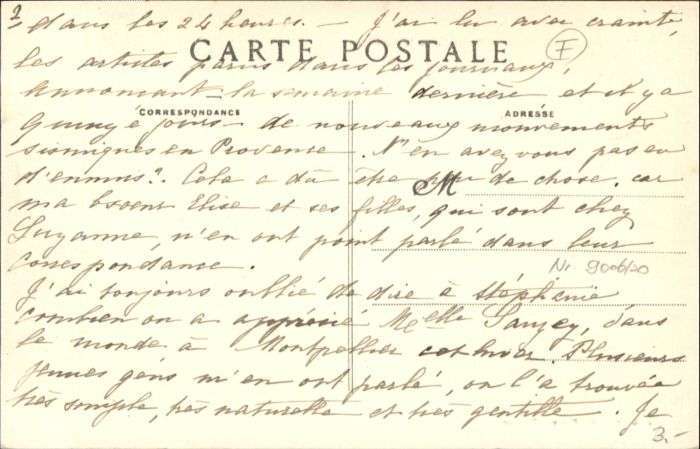 2, dans les 24 heures. — J'ai lu avec crainte,
CARTE POSTALE
F
les artistes parus dans les journaux,
annonçant la semaine dernière et il y a
CORRESPONDANCE
ADRESSE
quinze jours de nouveaux mouvements
sismiques en Provence. N'en avez vous pas eu
d'ennuis? Cela a dû être peu de chose, car
M
ma bsoeur Elise et ses filles, qui sont chez
Suzanne, n'en ont point parlé dans leur
correspondance.
Nr 9006/20
J'ai toujours oublié de dire à Stéphanie
combien on a apprécié Melle Sanzey, dans
le monde à Montpellier cet hiver. Plusieurs
jeunes gens m'en ont parlé, on l'a trouvée
très simple, très naturelle et très gentille. Je
3.-